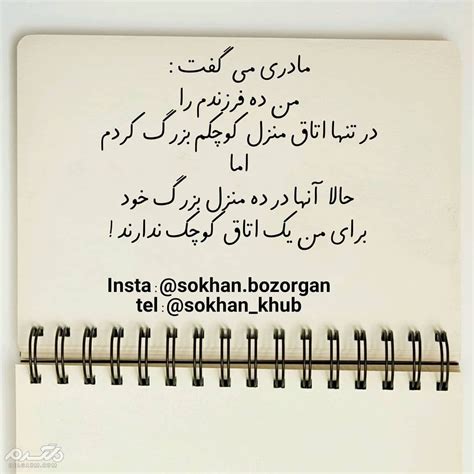 مادری می گفت :
من ده فرزندم را
در تنها اتاق منزل کوچکم بزرگ کردم
اما
حالا آنها در ده منزل بزرگ خود
برای من یک اتاق کوچک ندارند !
Insta : @sokhan.bozorgan
tel : @sokhan_khub